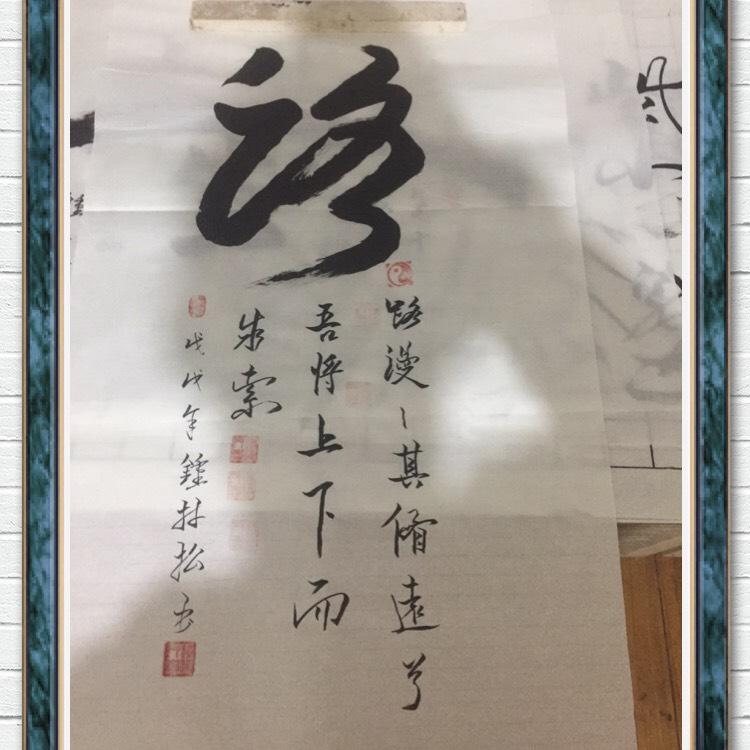 路
路漫〻其脩遠兮
吾將上下而
求索
戊戌年鍾林松書